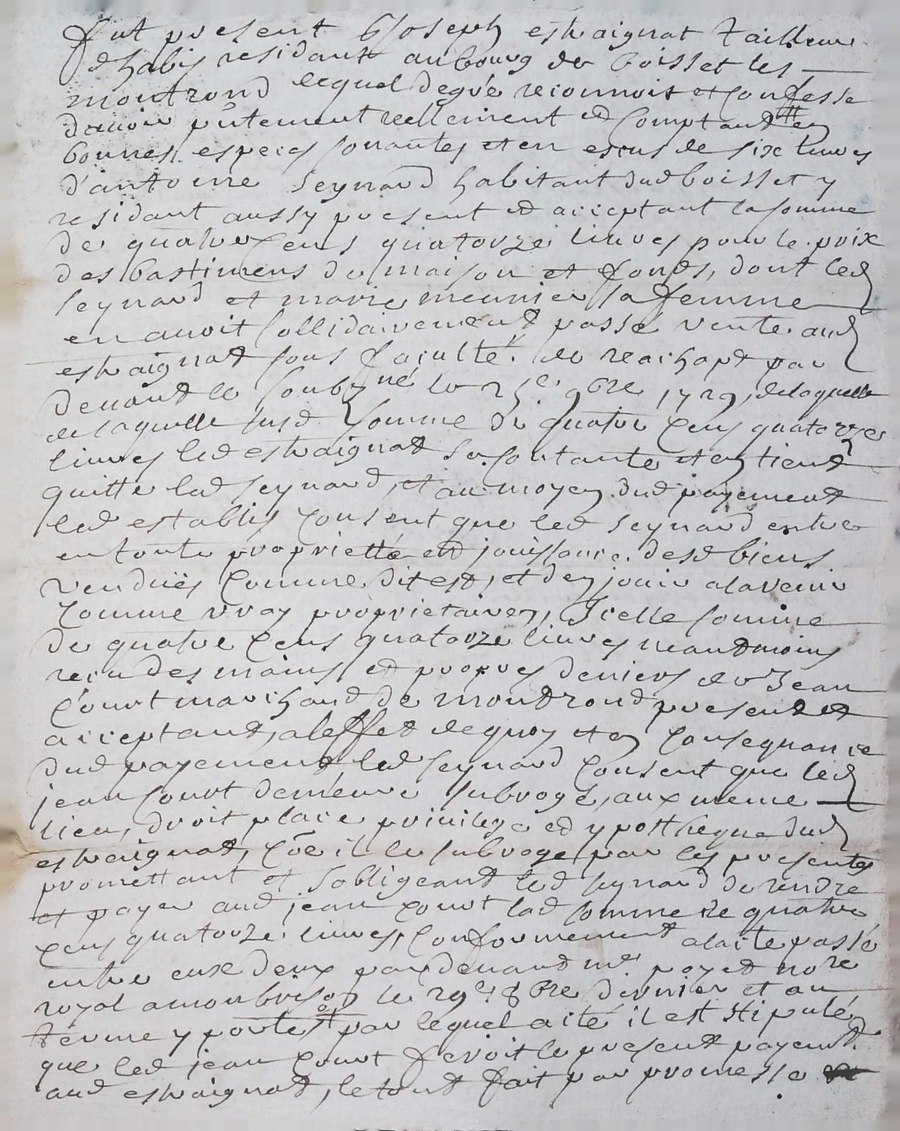 fut present Sr Joseph estraignat tailleur
d'habis residant au bourg de boisset les
montrond lequel degré reconnoit et confesse
davoir pntement reellement et comptant en
bonnes especes sonantes et en escus de six livres
d'antoine seynard habitant dud boisset y
residant aussy present et acceptant la somme
de quatre cens quatorze livres pour le prix
des bastimens de maison et fonds, dont led
seynard et marie meunier sa femme
en avoit sollidairement passé vente aud
estraignat sous faculté de reachapt par
devant le soubzné le 25e 9bre 1729, de laquelle
de laquelle susd somme de quatre cens quatorze
livres led estraignat se contante et en tient
quitte led seynard, et au moyen dud payement
led establis consent que led seynard entre
en toute proprietté et jouissance desd biens
venduës comme dit est, et den jouir a lavenir
comme vray proprietaire, Icelle somme
de quatre cens quatorze livres neantmoins
recu des mains et propres deniers de Sr Jean
Court marchand de montrond present et
acceptant, a leffet de quoy et en consequance
dud payement led seynard consent que led
jean Court demeure subrogé, aux meme
lieu, droit place privilege et ypottheque dud
estraignat, coe il le subroge par les presentes
promettant et sobligeant led seynard de rendre
et payer aud jean court lad somme de quatre
cens quatorze livres, conformement a lacte passé
entre eux deux pardevant me poyet nore
royal a monbrison le 29e 8bre dernier et au
terme y porte par lequel acte il est stipulé
que led jean Court feroit le present payemt
aud estraignat, le tout fait par promesse